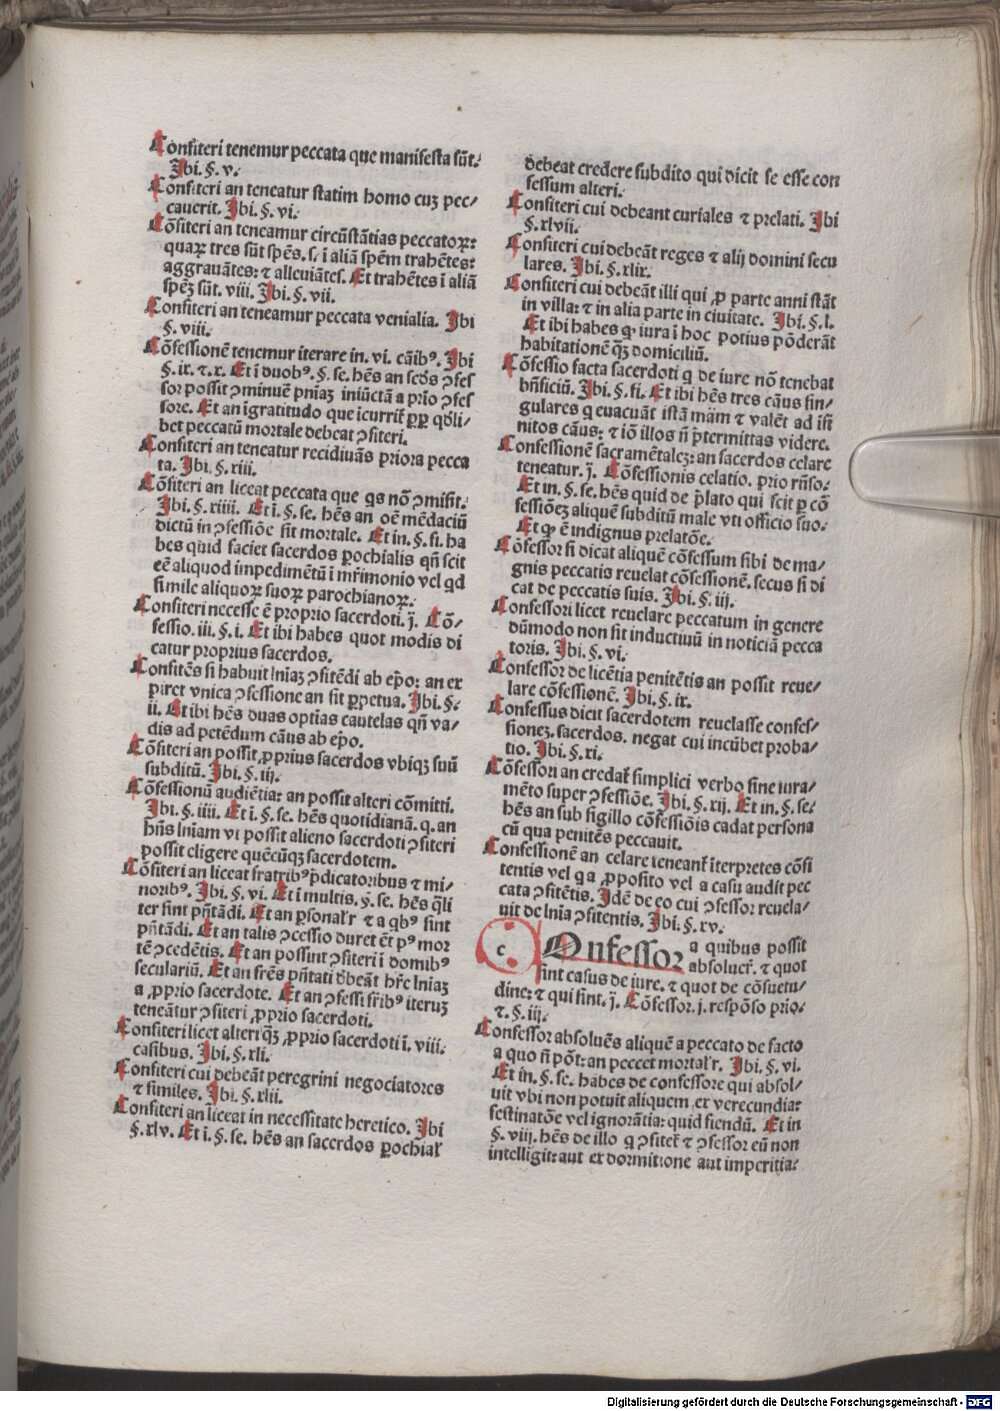 Confiteri tenemur peccata que manifesta sūt.
Ibi. §. v.
Confiteri an teneatur statim homo cuꝫ pec/
cauerit. Ibi. §. vi.
Cōfiteri an teneamur circūstātias peccatoꝝ:
quaꝝ tres sūt spēs. s. ī aliā spēm trahētes:
aggrauātes: ⁊ alleuiātes. Et trahētes ī aliā
spēꝫ sūt. viii. Ibi. §. vii.
Confiteri an teneamur peccata venialia. Ibi
§. viii.
Cōfessionē tenemur iterare in. vi. cāibꝰ. Ibi
§. ix. ⁊. x. Et ī duobꝰ. §. se. hēs an scd̄s ꝯfes
sor possit ꝯminuē pnīaꝫ iniūctā a prio ꝯfes
sore. Et an īgratitudo que īcurrit̄ ꝓꝑ qd̄li/
bet peccatū mortale debeat ꝯfiteri.
Confiteri an teneatur recidiuās priora pecca
ta. Ibi. §. xiii.
Cōfiteri an liceat peccata que qs nō ꝯmisit.
Ibi. §. xiiii. Et ī. §. se. hēs an oē mēdaciū
dictū in ꝯfessiōe sit mortale. Et in. §. fi. ha
bes quid faciet sacerdos ꝑochialis qn̄ scit
eē aliquod impedimētū ī mr̄imonio vel qd
simile aliquoꝝ suoꝝ parochianoꝝ.
Confiteri necesse ē proprio sacerdoti. j. Cō/
fessio. iii. §. i. Et ibi habes quot modis di
catur proprius sacerdos.
Confitēs si habuit lniaꝫ ꝯfitēdi ab ep̄o: an ex
piret vnica ꝯfessione an sit ꝑpetua. Ibi. §.
ii. Et ibi hēs duas optīas cautelas qn̄ va/
dis ad petēdum cāus ab ep̄o.
Cōfiteri an possit ꝓprius sacerdos vbiqꝫ suū
subditū. Ibi. §. iij.
Cōfessionū audiētia: an possit alteri cōmitti.
Ibi. §. iiii. Et ī. §. se. hēs quotidianā. q. an
hn̄s lniam vt possit alieno sacerdoti ꝯfiteri
possit eligere quēcūqꝫ sacerdotem.
Cōfiteri an liceat fratribꝰ p̄dicatoribus ⁊ mi/
noribꝰ. Ibi. §. vi. Et ī multis. §. se. hēs q̄li
ter sint pn̄tādi. Et an ꝑsonal'r ⁊ a qbꝰ sint
pn̄tādi. Et an talis ꝯcessio duret ēt pꝰ mor
tē ꝯcedētis. Et an possint ꝯfiteri ī domibꝰ
seculariū. Et an frēs pn̄tati dēbeāt hr̄e lniaꝫ
a ꝓprio sacerdote. Et an ꝯfessi fr̄ibꝰ iteruꝫ
teneātur ꝯfiteri ꝓprio sacerdoti.
Confiteri licet alteri qꝫ ꝓprio sacerdoti ī. viii.
casibus. Ibi. §. xli.
Confiteri cui debeāt peregrini negociatores
⁊ similes. Ibi. §. xlii.
Confiteri an liceat in necessitate heretico. Ibi
§. xlv. Et ī. §. se. hēs an sacerdos ꝑochial'
debeat credere subdito qui dicit se esse con
fessum alteri.
Confiteri cui debeant curiales ⁊ prelati. Ibi
§. xlvii.
Confiteri cui debeāt reges ⁊ alij domini secu
lares. Ibi. §. xlix.
Confiteri cui debeāt illi qui ꝓ parte anni stāt
in villa: ⁊ in alia parte in ciuitate. Ibi. §. l.
Et ibi habes qꝫ iura ī hoc potius pōderāt
habitationē qꝫ domiciliū.
Cōfessio facta sacerdoti q de iure nō tenebat
bn̄ficiū. Ibi. §. fi. Et ibi hēs tres cāus sin/
gulares q euacuāt istā mām ⁊ valēt ad ifi
nitos cāus: ⁊ iō illos n̄ p̄termittas videre.
Confessionē sacramētaleꝫ: an sacerdos celare
teneatur. j. Cōfessionis celatio. prio rn̄so.
Et in. §. se. hēs quid de p̄lato qui scit ꝑ cō
fessiōeꝫ aliquē subditū male vti officio suo.
Et qꝫ ē indignus prelatōe.
Cōfessor si dicat aliquē cōfessum sibi de ma/
gnis peccatis reuelat cōfessionē. secus si di
cat de peccatis suis. Ibi. §. iij.
Confessori licet reuelare peccatum in genere
dūmodo non sit inductiuū in noticiā pecca
toris. Ibi. §. vi.
Confessor de licētia penitētis an possit reue/
lare cōfessionē. Ibi. §. ix.
Confessus dicit sacerdotem reuelasse confes/
sioneꝫ. sacerdos. negat cui incūbet proba/
tio. Ibi. §. xi.
Cōfessori an credat̄ simplici verbo sine iura/
mēto super ꝯfessiōe. Ibi. §. xij. Et in. §. se.
hēs an sub sigillo cōfessiōis cadat persona
cū qua penitēs peccauit.
Confessionē an celare teneant̄ īterpretes cōfi
tentis vel q a ꝓposito vel a casu audit pec
cata ꝯfitētis. Idē de eo cui ꝯfessor reuela/
uit de lnia ꝯfitentis. Ibi. §. xv.
c Onfessor a quibus possit
absolucr̄. ⁊ quot
sint casus de iure. ⁊ quot de cōsuetu/
dine: ⁊ qui sint. j. Cōfessor. j. respōso prio.
⁊. §. iij.
Confessor absoluēs aliquē a peccato de facto
a quo n̄ pōt: an peccet mortal'r. Ibi. §. vi.
Et in. §. se. habes de confessore qui absol/
uit vbi non potuit aliquem ex verecundia:
festinatōe vel ignorātia: quid fiendū. Et in
§. viij. hēs de illo q ꝯfitet̄ ⁊ ꝯfessor eū non
intelligit: aut ex dormitione aut imperitia.
Digitalisierung gefördert durch die Deutsche Forschungsgemeinschaft - DFG